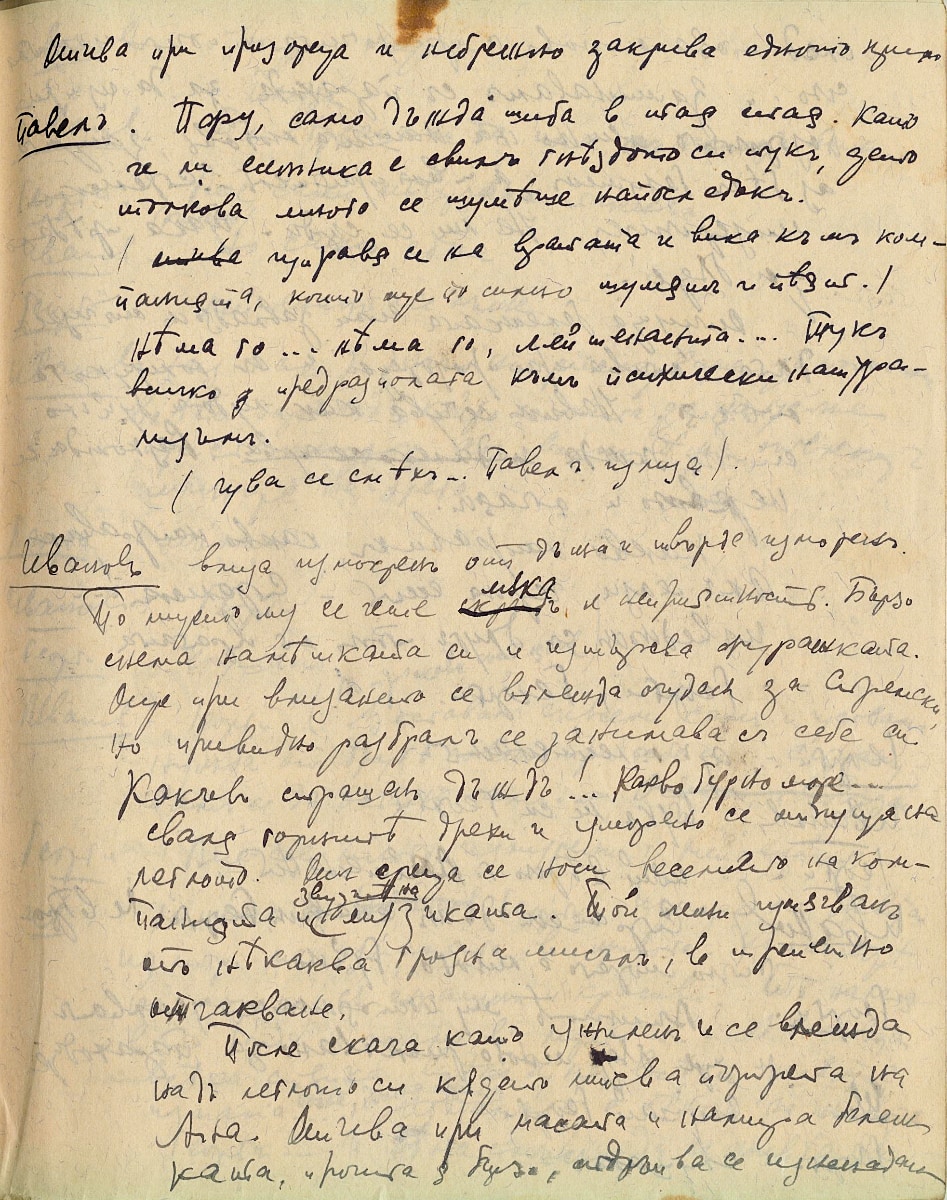 Отива при прозореца и небрежно закрива едното крило
Павелъ. Пору, само дъжда шиба в
че ли есеньта е свилъ гнѣздото си тукъ, дето
толкова много се шумѣше напоследокъ.
/ отива изправя се на вратата и вика къмъ ком-
панията, които още по силно шумятъ и пѣят. /
Нѣма го... нѣма го, лейтенанта... Тукъ
всичко предразполага къмъ психически натура-
лизъмъ.
( чува се смѣхъ... Павелъ излиза ).
Ивановъ влиза измокренъ отъ дъжда и твърде изморенъ.
По лицето му се чете мѫка и неприятность. Бързо
снема намѣтката си и изтърсва фуражката.
Още при влизането се вглежда очуден за Стремски,
но привидно разбралъ се занимава съ себе си
Какъвъ страшен дъждъ!.. Какво бурно море...
сваля горнитѣ дрехи и уморено се отпуща на
леглото. От среща се носи веселието на ком-
панията и звуците на музиката. Той лежи
отъ нѣкаква грозна мисъль, в трепетно
отчакване.
После скача като ужиленъ и се вглежда
надъ леглото си кѫдето липсва портрета на
Ана. Отива при масата и намира бележ-
ката, прочита я бързо, отдръпва се изненадан